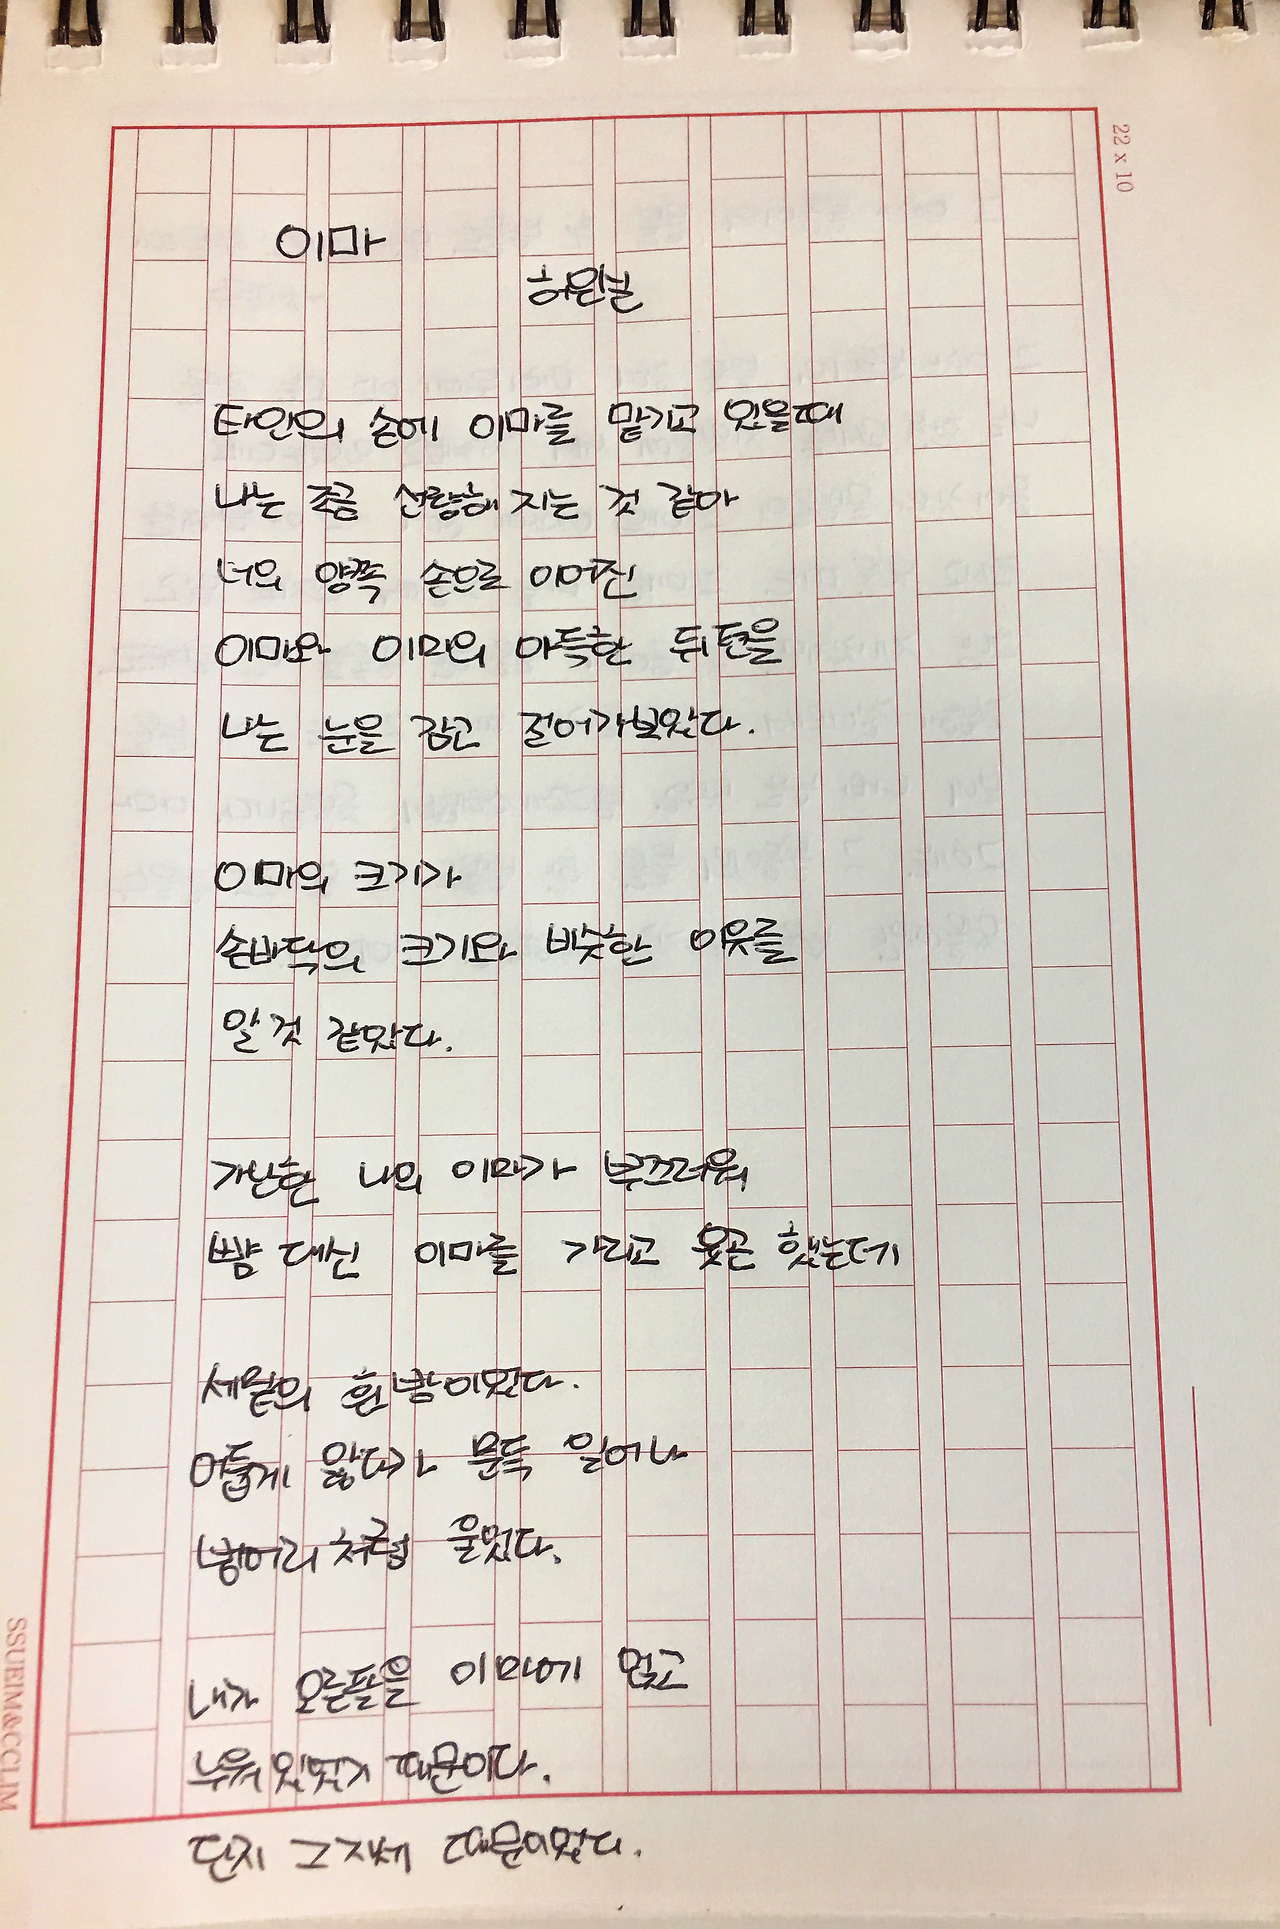 22 x 10
이마
허은실
타인의 손에 이마를 맡기고 있을때
나는 조금 선량해 지는 것 같아
너의 양쪽 손으로 이어진
이마와 이마의 아득한 뒤편을
나는 눈을 감고 걸어가보았다.
이마의 크기가
손바닥의 크기와 비슷한 이유를
알 것 같았다.
가난한 나의 이마가 부끄러워
뺨 대신 이마를 가리고 웃곤 했는데
세밑의 흰 밤이었다.
어둡게 앓다가 문득 일어나
벙어리처럼 울었다.
내가 오른팔을 이마에 얹고
누워있었기 때문이다.
단지 그 자세 때문이었다.
SSUEIM&CCLIM